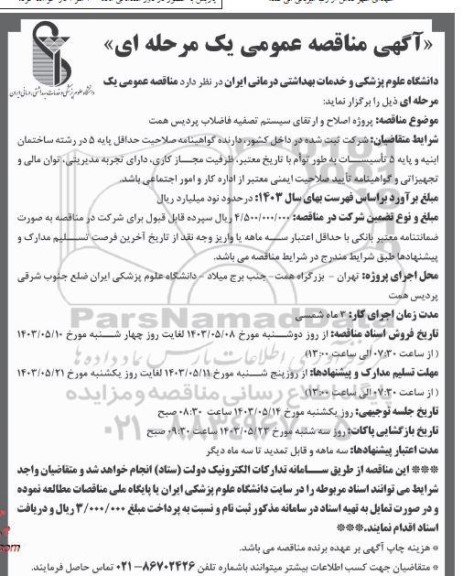 «آگهی مناقصه عمومی یک مرحله ای»
دانشگاه علوم پزشکی و خدمات بهداشتی درمانی ایران در نظر دارد مناقصه عمومی یک
مرحله ای ذیل را برگزار نماید:
موضوع مناقصه: پروژه اصلاح و ارتقای سیستم تصفیه فاضلاب پردیس همت
شرایط متقاضیان: شرکت ثبت شده در داخل کشور، دارنده گواهینامه صلاحیت حداقل پایه 5 در رشته ساختمان
ابنیه و پایه 5 تأسیسات به طور توأم با تاریخ معتبر، ظرفیت مجاز کاری، دارای تجربه مدیریتی، توان مالی و
تجهیزاتی و گواهینامه تأیید صلاحیت ایمنی معتبر از اداره کار و امور اجتماعی باشد.
مبلغ برآورد براساس فهرست بهای سال ۱۴۰۳: در حدود نود میلیارد ریال
مبلغ و نوع تضمین شرکت در مناقصه: ۴/۵۰۰/۰۰۰/۰۰۰ ریال سپرده قابل قبول برای شرکت در مناقصه به صورت
ضمانتنامه معتبر بانکی با حداقل اعتبار سه ماهه یا واریز وجه نقد از تاریخ آخرین فرصت تسلیم مدارک و
پیشنهادها طبق شرایط مندرج در شرایط مناقصه می باشد.
محل اجرای پروژه: تهران - بزرگراه همت - جنب برج میلاد - دانشگاه علوم پزشکی ایران ضلع جنوب شرقی
پردیس همت
مدت زمان اجرای کار: ۳ ماه شمسی
تاریخ فروش اسناد مناقصه: از روز دوشنبه مورخ ۱۴۰۳/۰۵/۰۸ لغایت روز چهار شنبه مورخ ۱۴۰۳/۰۵/۱۰
( از ساعت ۰۷:۳۰ الی ساعت ۱۳:۰۰)
مهلت تسلیم مدارک و پیشنهادها: از روز پنج شنبه مورخ ۱۴۰۳/۰۵/۱۱ لغایت روز یکشنبه مورخ ۱۴۰۳/۰۵/۲۱
( از ساعت ۰۷:۳۰ الی ساعت ۱۳:۰۰)
تاریخ جلسه توجیهی: روز یکشنبه مورخ ۱۴۰۳/۰۵/۱۴ ساعت ۰۸:۳۰ صبح
تاریخ بازگشایی پاکات: روز سه شنبه مورخ ۱۴۰۳/۰۵/۲۳ ساعت ۰۹:۳۰ صبح
مدت اعتبار پیشنهادها: سه ماهه و قابل تمدید تا سه ماه دیگر
*** این مناقصه از طریق سامانه تدارکات الکترونیک دولت (ستاد) انجام خواهد شد و متقاضیان واجد
شرایط می توانند اسناد مربوطه را در سایت دانشگاه علوم پزشکی ایران یا پایگاه ملی مناقصات مطالعه نموده
و در صورت تمایل به تهیه اسناد در سامانه مذکور ثبت نام و نسبت به پرداخت مبلغ ۳/۰۰۰/۰۰۰ ریال و دریافت
اسناد اقدام نمایند.***
* هزینه چاپ آگهی بر عهده برنده مناقصه می باشد.
* متقاضیان جهت کسب اطلاعات بیشتر میتوانند باشماره تلفن ۸۶۷۰۲۴۲۶-۰۲۱ تماس حاصل فرمایند.
ParsNamadData